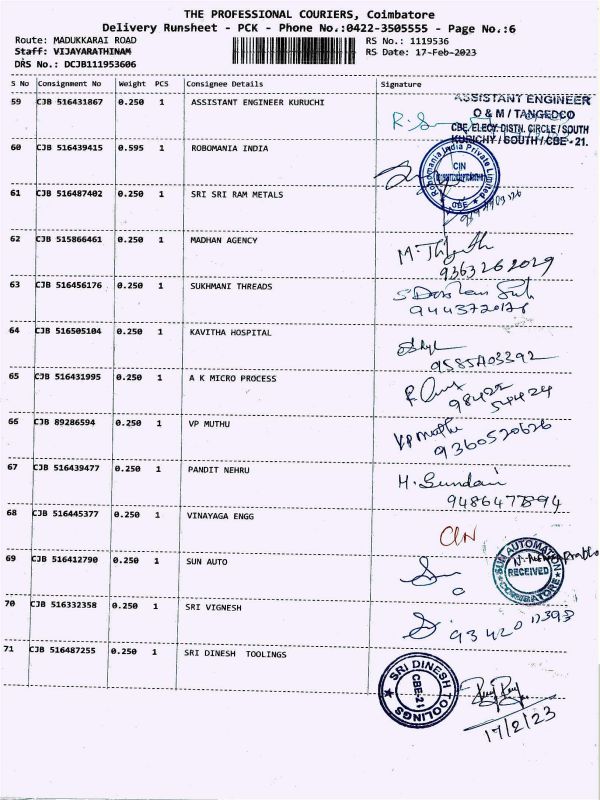 THE PROFESSIONAL COURIERS, Coimbatore
Delivery Runsheet - PCK - Phone No.:0422-3505555 - Page No.:6
Route: MADUKKARAI ROAD RS No.: 1119536
Staff: VIJAYARATHINAM RS Date: 17-Feb-2023
DRS No.: DCJB111953606
S No Consignment No Weight PCS Consignee Details Signature
59 CJB 516431867 0.250 1 ASSISTANT ENGINEER KURUCHI
ASSISTANT ENGINEER
O & M / TANGEDCO
CBE/ELECY.DISTN. CIRCLE/SOUTH
KURICHY / SOUTH / CBE - 21.
60 CJB 516439415 0.595 1 ROBOMANIA INDIA
Robomania India Private Limited
CIN
CBE
61 CJB 516487402 0.250 1 SRI SRI RAM METALS
62 CJB 515866461 0.250 1 MADHAN AGENCY
9363262029
63 CJB 516456176 0.250 1 SUKHMANI THREADS
64 CJB 516505104 0.250 1 KAVITHA HOSPITAL
65 CJB 516431995 0.250 1 A K MICRO PROCESS
98422
54424
66 CJB 89286594 0.250 1 VP MUTHU
VP Muthu
9360520626
67 CJB 516439477 0.250 1 PANDIT NEHRU
9486477894
68 CJB 516445377 0.250 1 VINAYAGA ENGG
69 CJB 516412790 0.250 1 SUN AUTO
SUN AUTOMATION
RECEIVED
COIMBATORE
70 CJB 516332358 0.250 1 SRI VIGNESH
71 CJB 516487255 0.250 1 SRI DINESH TOOLINGS
SRI DINESH TOOLINGS
CBE-21
17/2/23